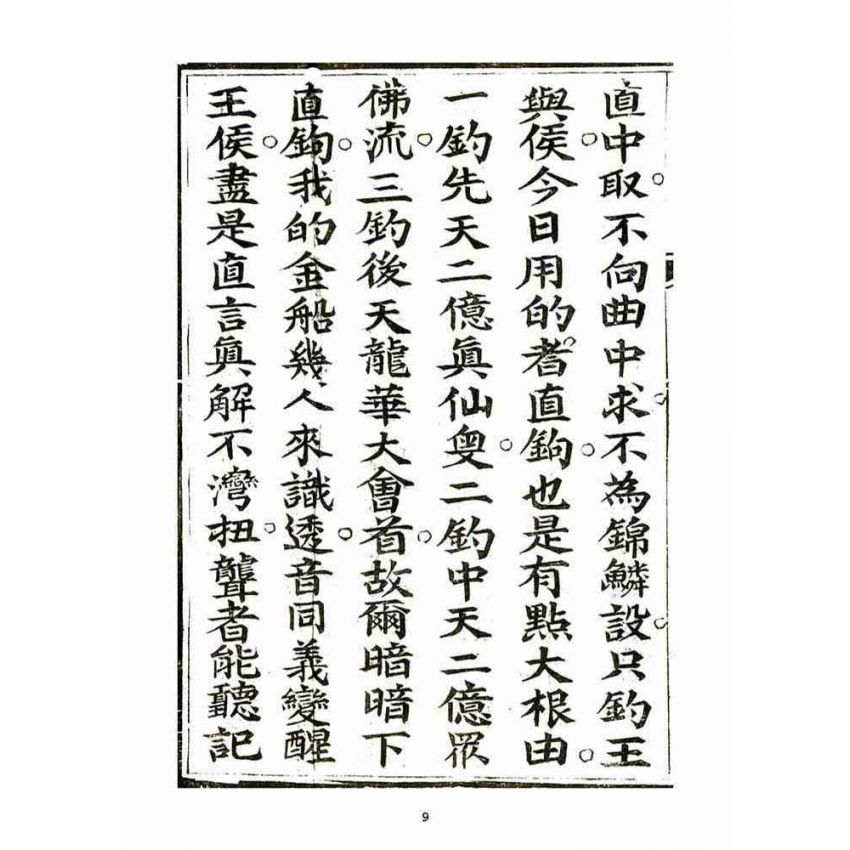 直中取。不向曲中求。不為錦鱗設。只釣王
與侯。今日用的著直鉤。也是有點大根由。
一釣先天二億眞仙叟。二釣中天二億眾
佛流。三釣後天龍華大會首。故爾暗暗下
直鉤。我的金船幾人來識透。音同義變醒
王侯。盡是直言眞解不灣扭。聾者能聽記
9